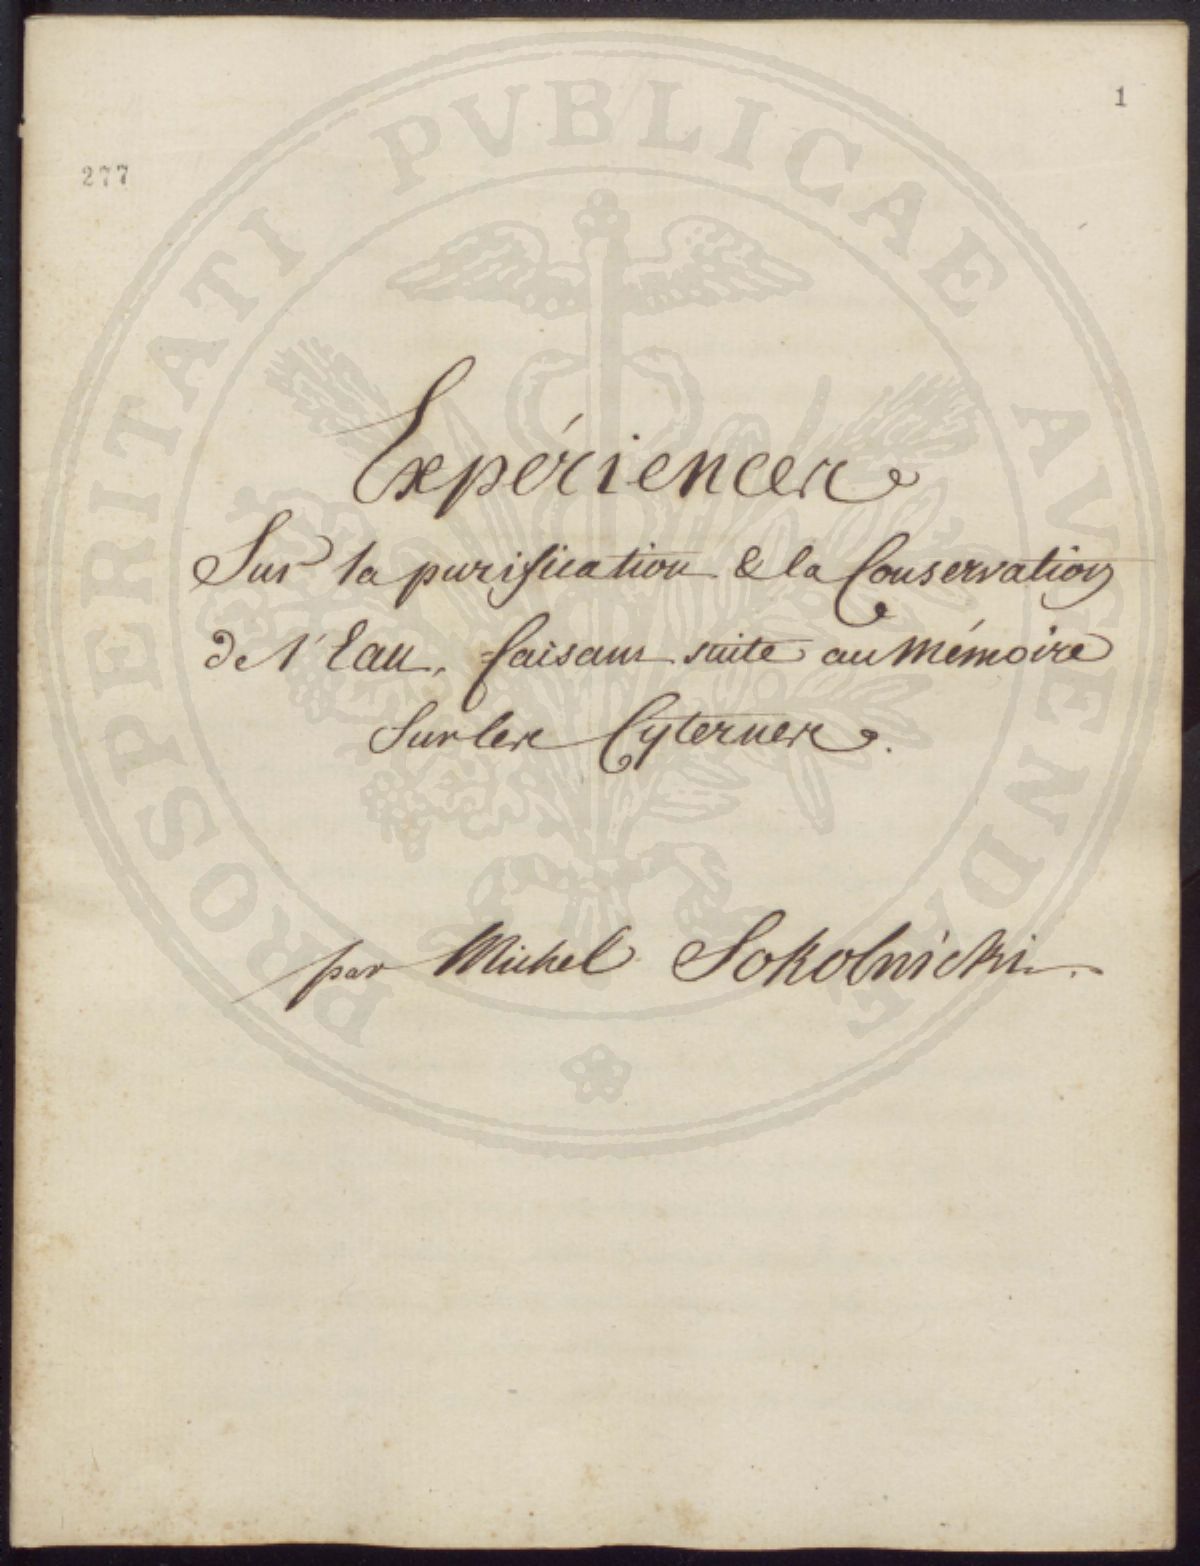 1
277
Expériences
Sur la purification & la Conservation
de l'Eau, faisant suite au Mémoire
Sur les Cyternes.
par Michel Sokolnicki.
PROSPERITATI PVBLICAE AVGENDAE